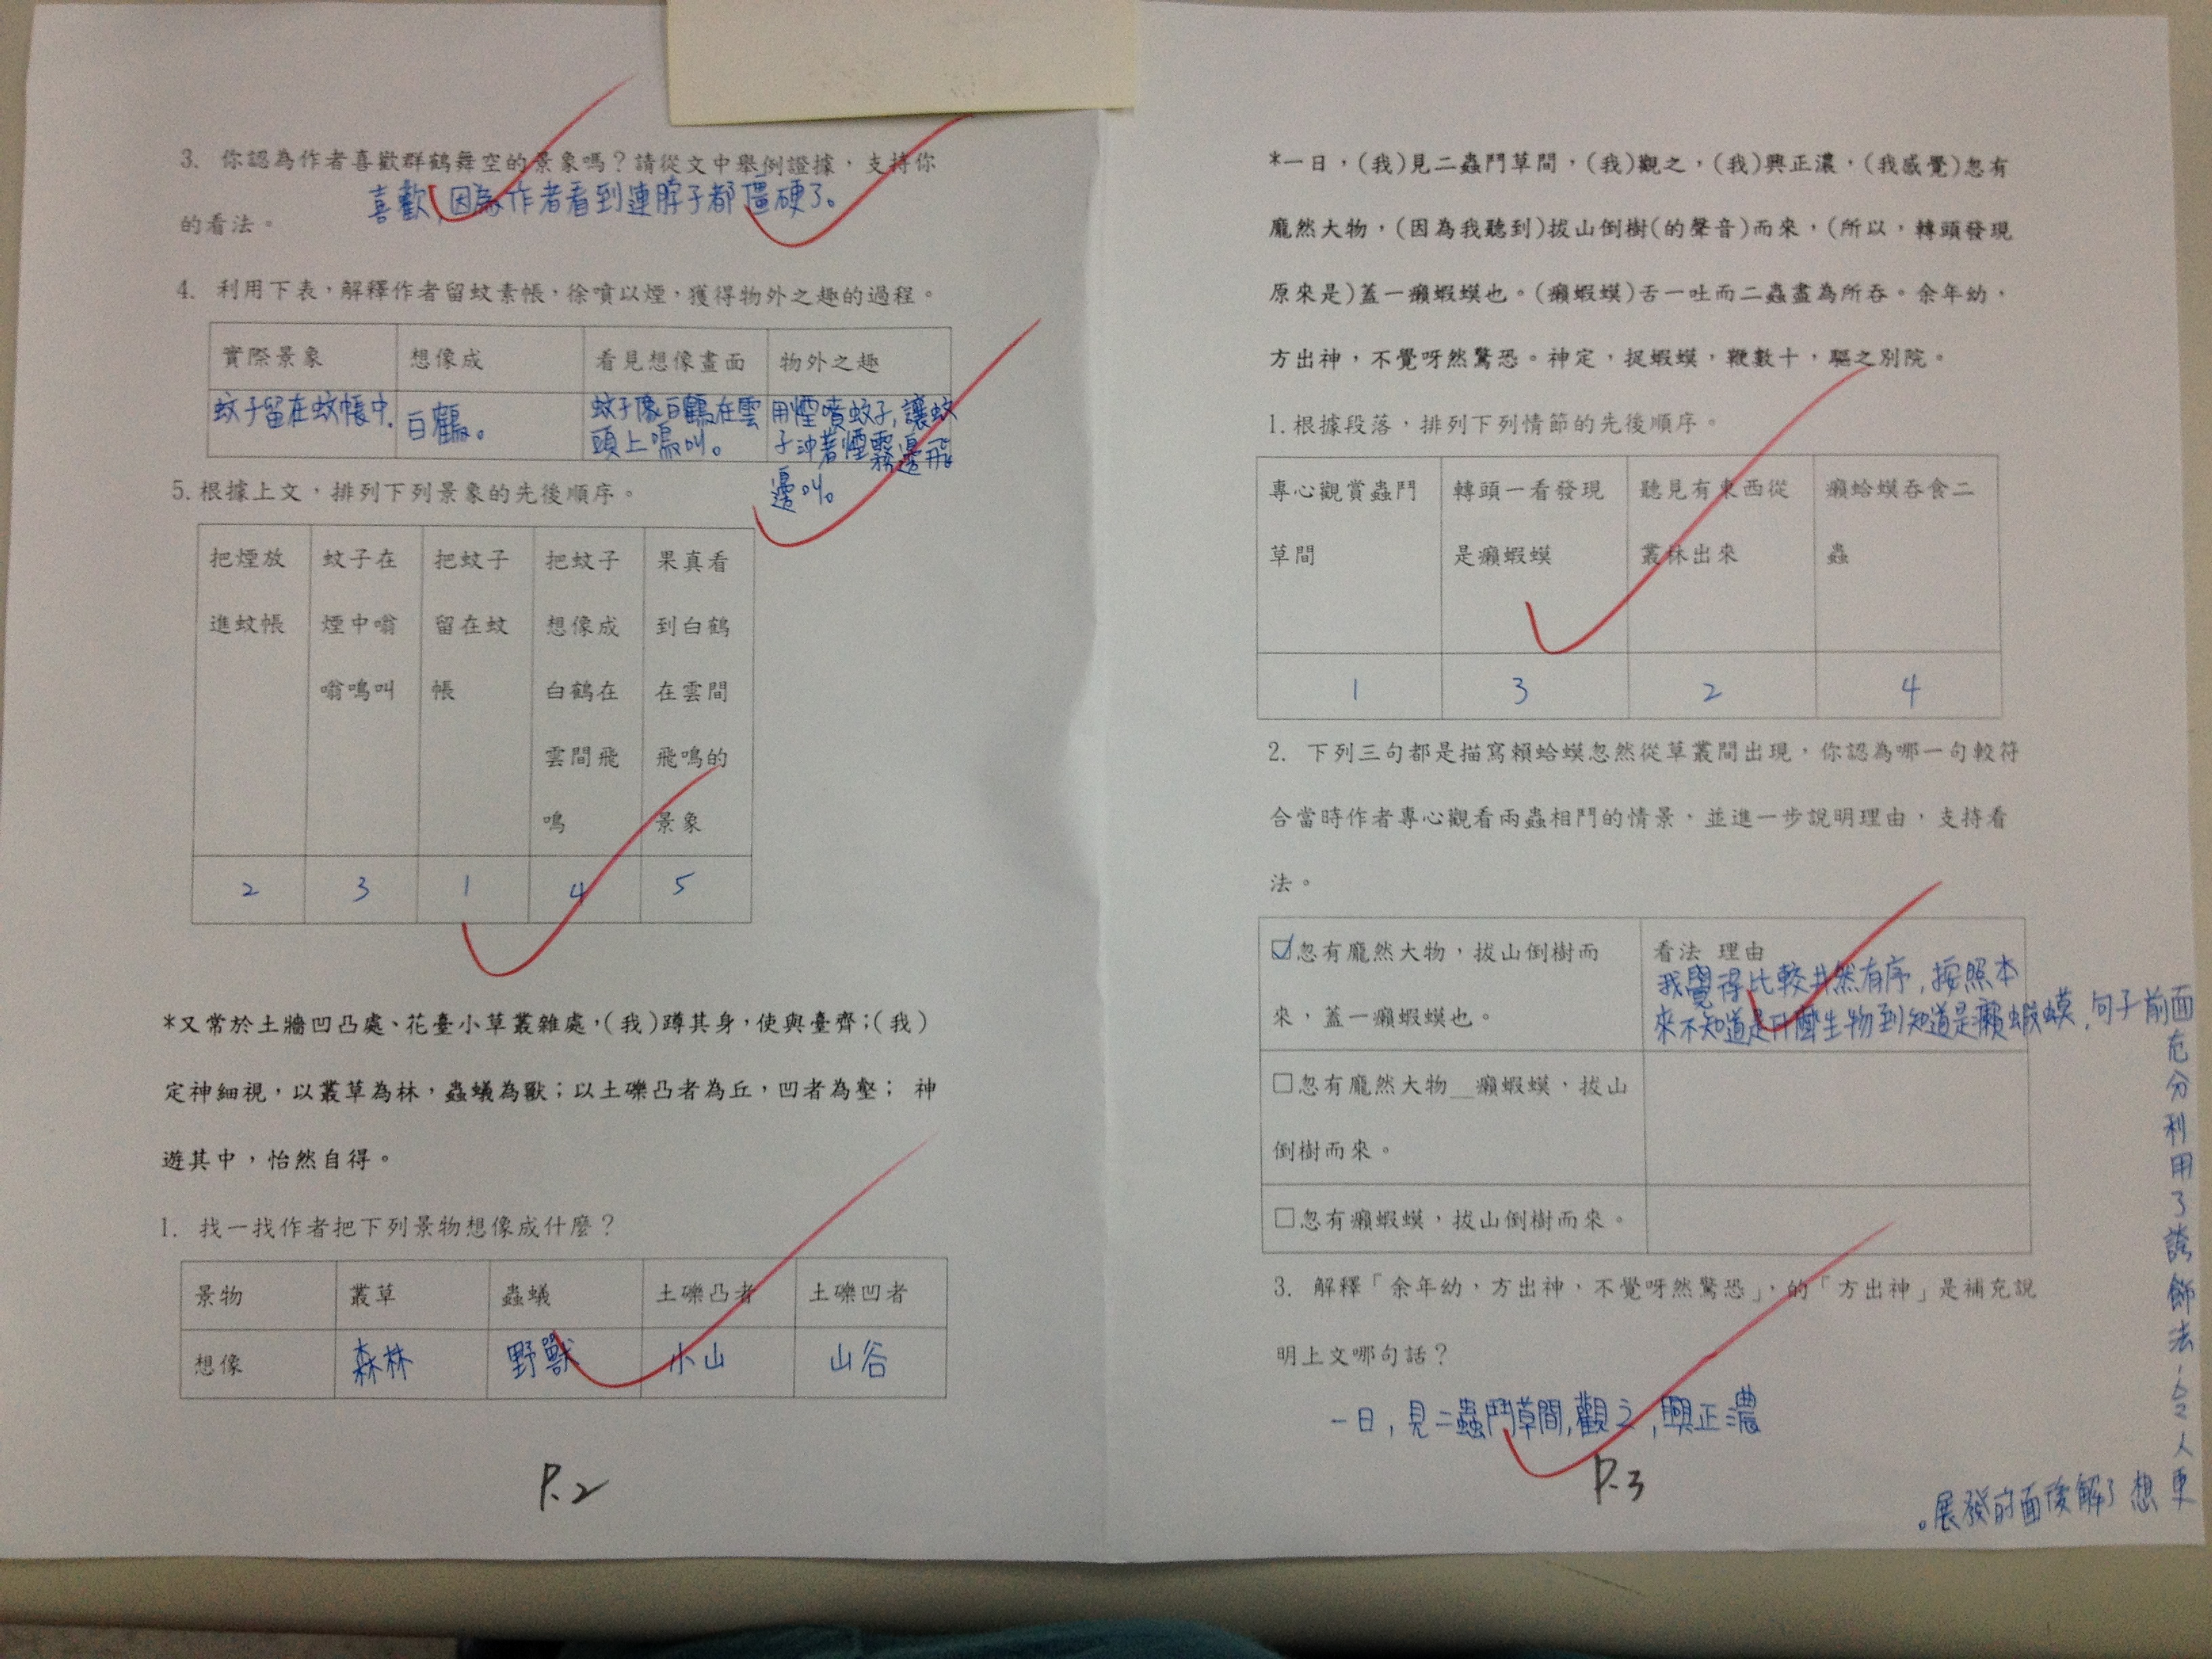 3. 你認為作者喜歡群鶴舞空的景象嗎？請從文中舉例證據，支持你
喜歡，因為作者看到連脖子都僵硬了。
的看法。
4. 利用下表，解釋作者留蚊素帳，徐噴以煙，獲得物外之趣的過程。
實際景象 想像成 看見想像畫面 物外之趣
蚊子留在蚊帳中. 白鶴。 蚊子像白鶴在雲 用煙噴蚊子，讓蚊
頭上鳴叫。 子沖著煙霧邊飛
邊叫。
5.根據上文，排列下列景象的先後順序。
把煙放 蚊子在 把蚊子 把蚊子 果真看
進蚊帳 煙中嗡 留在蚊 想像成 到白鶴
嗡鳴叫 帳 白鶴在 在雲間
雲間飛 飛鳴的
鳴 景象
2 3 1 4 5
*又常於土牆凹凸處、花臺小草叢雜處，(我)蹲其身，使與臺齊；(我)
定神細視，以叢草為林，蟲蟻為獸；以土礫凸者為丘，凹者為壑； 神
遊其中，怡然自得。
1. 找一找作者把下列景物想像成什麼？
景物 叢草 蟲蟻 土礫凸者 土礫凹者
想像 森林 野獸 小山 山谷
P.2
*一日，(我)見二蟲鬥草間，(我)觀之，(我)興正濃，(我感覺)忽有
龐然大物，(因為我聽到)拔山倒樹(的聲音)而來，(所以，轉頭發現
原來是)蓋一癩蝦蟆也。(癩蝦蟆)舌一吐而二蟲盡為所吞。余年幼，
方出神，不覺呀然驚恐。神定，捉蝦蟆，鞭數十，驅之別院。
1.根據段落，排列下列情節的先後順序。
專心觀賞蟲鬥 轉頭一看發現 聽見有東西從 癩蛤蟆吞食二
草間 是癩蝦蟆 叢林出來 蟲
1 3 2 4
2. 下列三句都是描寫賴蛤蟆忽然從草叢間出現，你認為哪一句較符
合當時作者專心觀看兩蟲相鬥的情景，並進一步說明理由，支持看
法。
☑忽有龐然大物，拔山倒樹而 看法 理由
來，蓋一癩蝦蟆也。
我覺得比較井然有序，按照本
來不知道是什麼生物到知道是癩蝦蟆，句子前面
充分利用了誇飾法，令人更
想了解後面的發展。
□忽有龐然大物__癩蝦蟆，拔山
倒樹而來。
□忽有癩蝦蟆，拔山倒樹而來。
3. 解釋「余年幼，方出神，不覺呀然驚恐」，的「方出神」是補充說
明上文哪句話？
一日，見二蟲鬥草間，觀之，興正濃
P.3